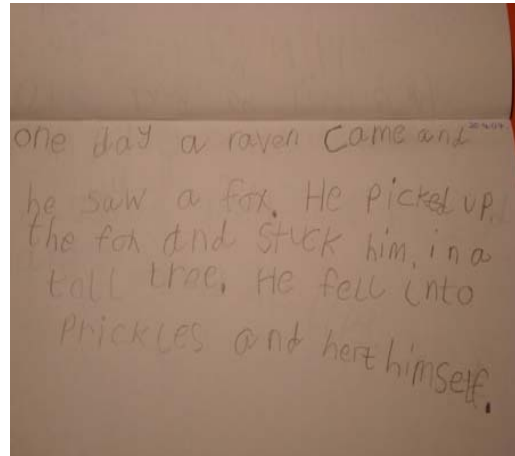 one day a raven came and
he saw a fox. He picked up
the fox and stuck him in a
tall tree. He fell into
Prickles and hert himself.